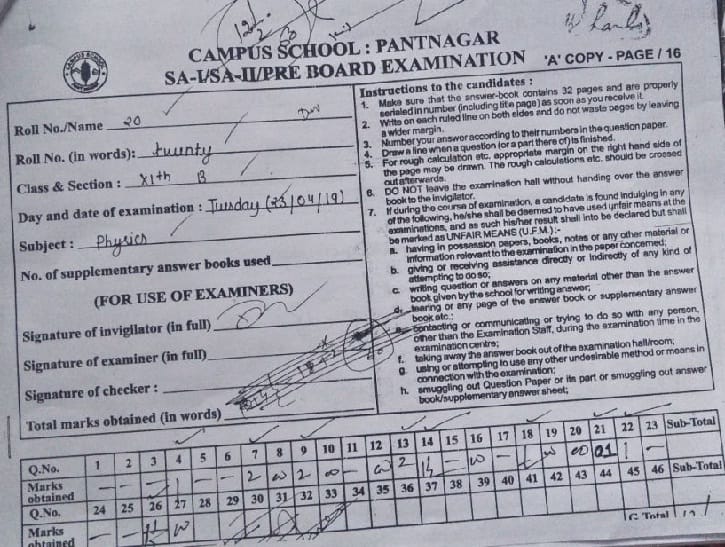 CAMPUS SCHOOL : PANTNAGAR
SA-I/SA-II/PRE BOARD EXAMINATION 'A' COPY - PAGE / 16
CAMPUS SCHOOL
Roll No./Name 20
Roll No. (in words): twunty
Class & Section : XIth B
Day and date of examination : Tusday (23/04/19)
Subject : Physics
No. of supplementary answer books used
(FOR USE OF EXAMINERS)
Signature of invigilator (in full)
Signature of examiner (in full)
Signature of checker :
Total marks obtained (in words)
Instructions to the candidates :
1. Make sure that the answer-book contains 32 pages and are properly
serialed in number (including title page) as soon as you receive it.
2. Write on each ruled line on both sides and do not waste pages by leaving
a wider margin.
3. Number your answer according to their numbers in the question paper.
4. Draw a line when a question (or a part there of) is finished.
5. For rough calculation etc. appropriate margin on the right hand side of
the page may be drawn. The rough calculations etc. should be crossed
out afterwards.
6. DO NOT leave the examination hall without handing over the answer
book to the invigilator.
7. If during the course of examination, a candidate is found indulging in any
of the following, he/she shall be deemed to have used unfair means at the
examinations, and as such his/her result shall into be declared but shall
be marked as UNFAIR MEANS (U.F.M.) :-
a. having in possession papers, books, notes or any other material or
information relevant to the examination in the paper concerned;
b. giving or receiving assistance directly or indirectly of any kind of
attempting to do so;
c. writing question or answers on any material other than the answer
book given by the school for writing answer;
d. tearing or any page of the answer book or supplementary answer
book etc.:
e. contacting or communicating or trying to do so with any person,
other than the Examination Staff, during the examination time in the
examination centre;
f. taking away the answer book out of the examination hall/room;
g. using or attempting to use any other undesirable method or means in
connection with the examination;
h. smuggling out Question Paper or its part or smuggling out answer
book/supplementary answer sheet;
Q.No. 1 2 3 4 5 6 7 8 9 10 11 12 13 14 15 16 17 18 19 20 21 22 23 Sub-Total
Marks
obtained
Q.No. 24 25 26 27 28 29 30 31 32 33 34 35 36 37 38 39 40 41 42 43 44 45 46 Sub-Total
Marks
obtained
G Total